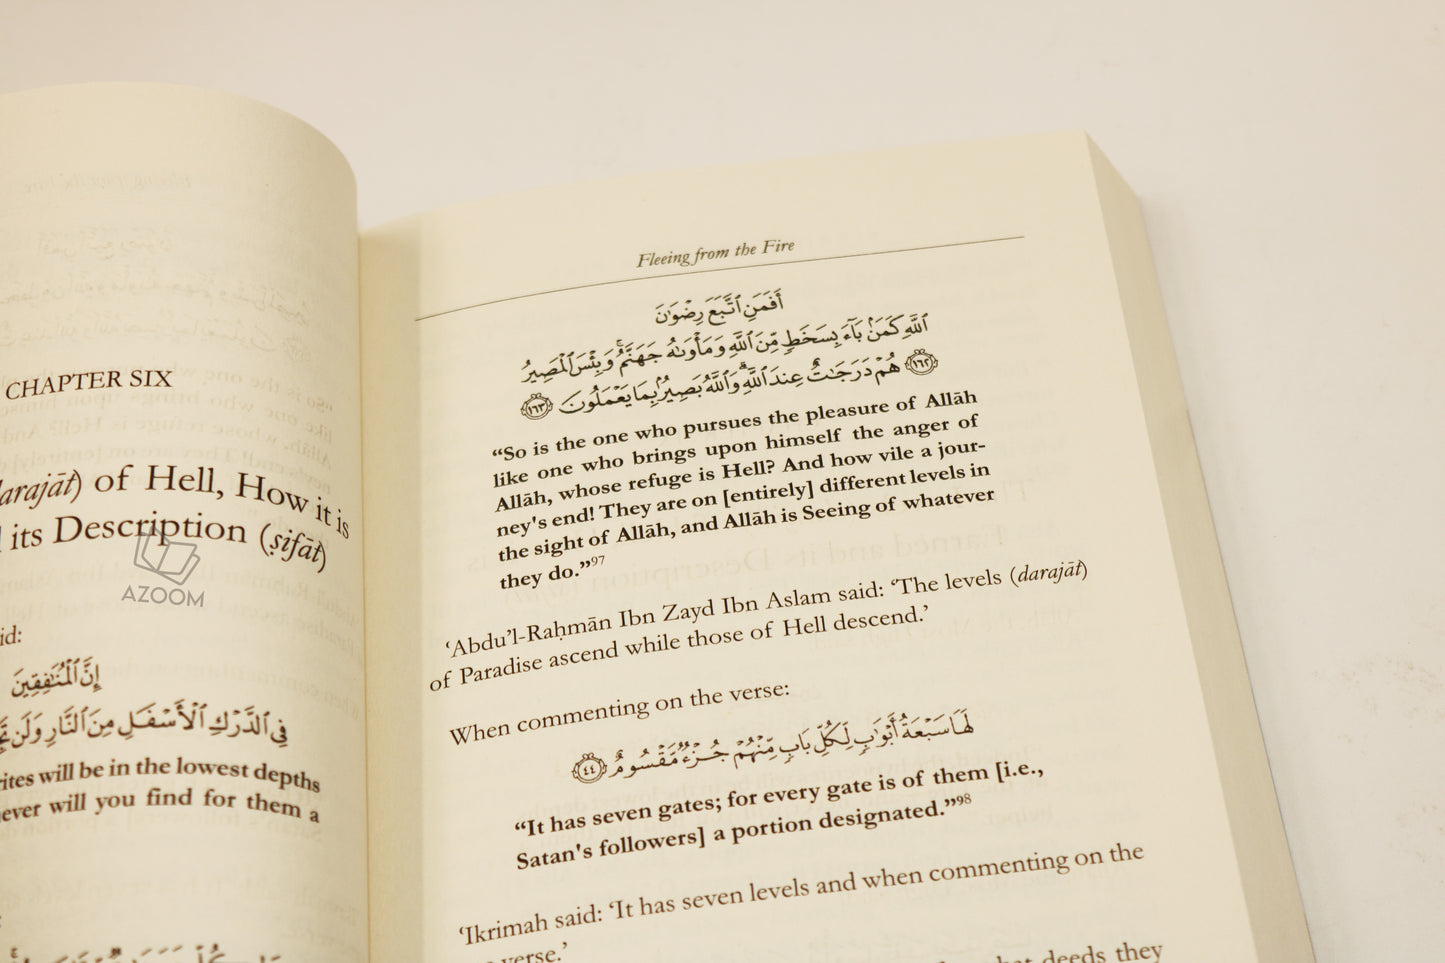 CHAPTER SIX
of Hell, How it is
its Description (ṣifāt)
AZOOM
إِنَّ ٱلْمُنَـٰفِقِينَ
فِي ٱلدَّرْكِ ٱلْأَسْفَلِ مِنَ ٱلنَّارِ وَلَن
will be in the lowest depths
will you find for them a
Fleeing from the Fire
أَفَمَنِ ٱتَّبَعَ رِضْوَٰنَ
ٱللَّهِ كَمَنۢ بَآءَ بِسَخَطٍ مِّنَ ٱللَّهِ وَمَأْوَىٰهُ جَهَنَّمُ ۚ وَبِئْسَ ٱلْمَصِيرُ
١٦٢ هُمْ دَرَجَـٰتٌ عِندَ ٱللَّهِ ۗ وَٱللَّهُ بَصِيرٌۢ بِمَا يَعْمَلُونَ ١٦٣
“So is the one who pursues the pleasure of Allāh
like one who brings upon himself the anger of
Allāh, whose refuge is Hell? And how vile a jour-
ney's end! They are on [entirely] different levels in
the sight of Allāh, and Allāh is Seeing of whatever
they do.”97
‘Abdu’l-Raḥmān Ibn Zayd Ibn Aslam said: ‘The levels (darajāt)
of Paradise ascend while those of Hell descend.’
When commenting on the verse:
لَهَا سَبْعَةُ أَبْوَٰبٍ لِّكُلِّ بَابٍ مِّنْهُمْ جُزْءٌ مَّقْسُومٌ ٤٤
“It has seven gates; for every gate is of them [i.e.,
Satan's followers] a portion designated.”98
‘Ikrimah said: ‘It has seven levels and when commenting on the
verse.’
deeds they